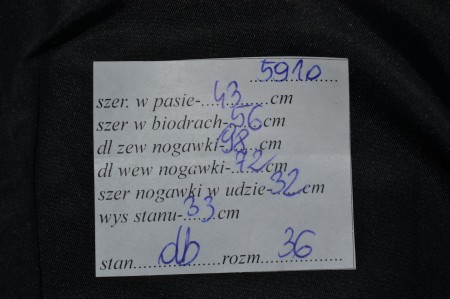 5910
szer. w pasie-...43......cm
szer w biodrach-56cm
dł zew nogawki-98...cm
dł wew nogawki-72cm
szer nogawki w udzie-32cm
wys stanu-33cm
stan....db....rozm....36....